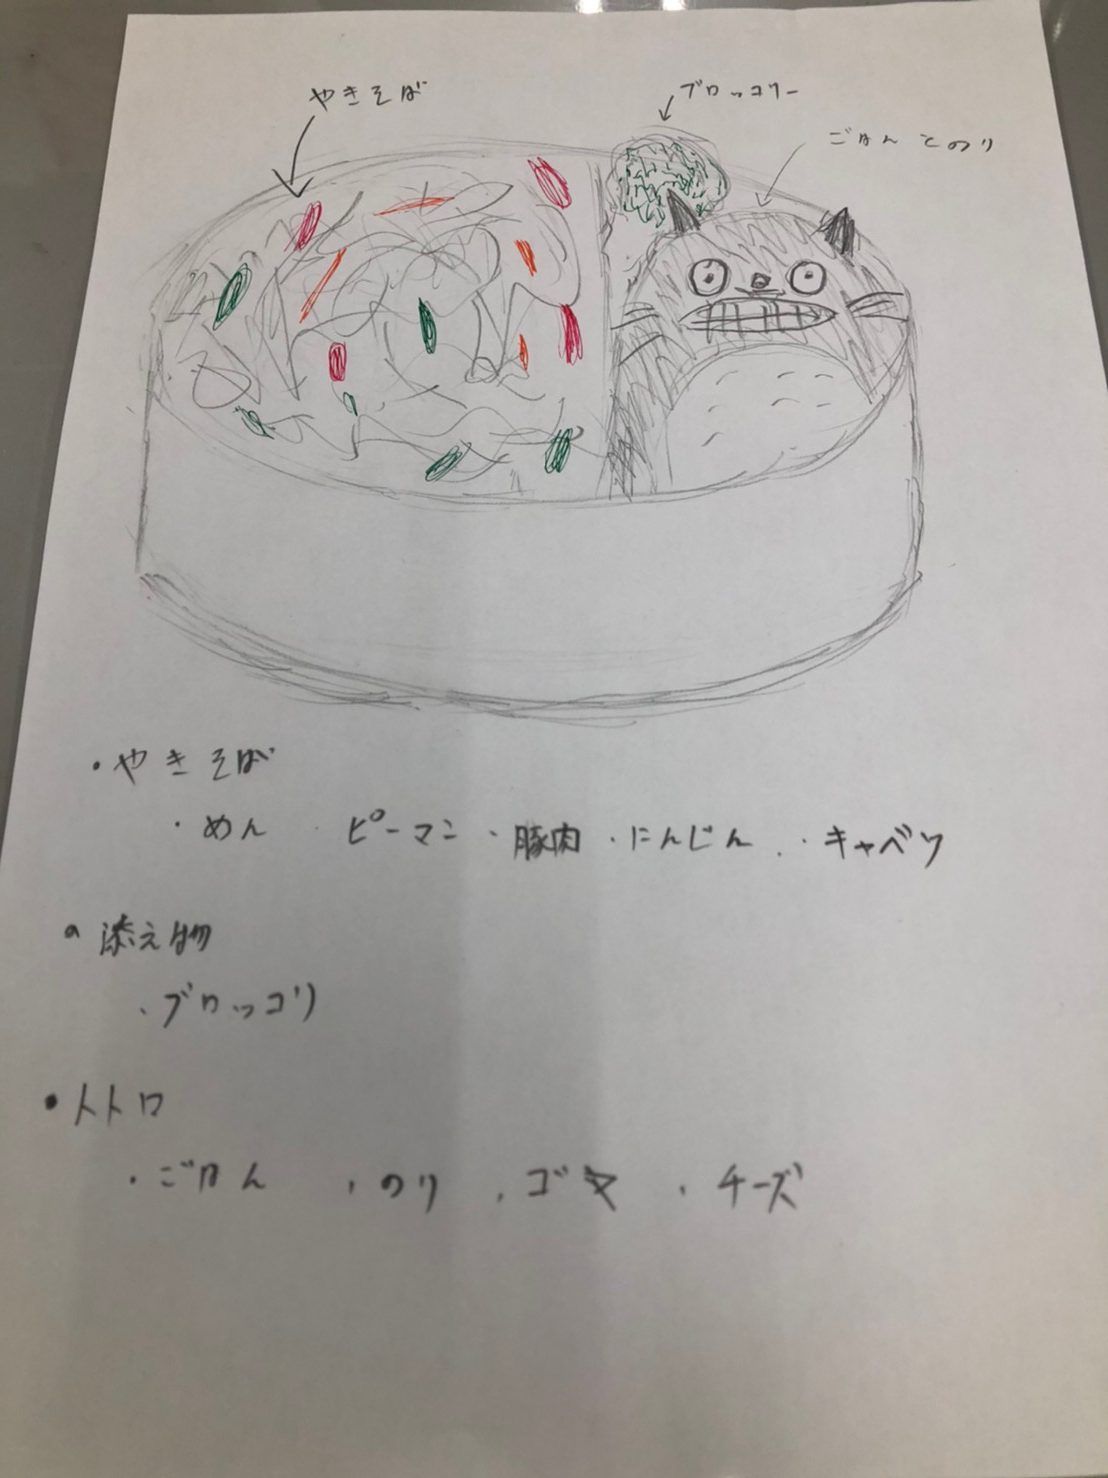 やきそば
ブロッコリー
ごはんとのり
・やきそば
・めん ・ピーマン ・豚肉 ・にんじん ・キャベツ
・添え物
・ブロッコリ
・トトロ
・ごはん ・のり ・ゴマ ・チーズ